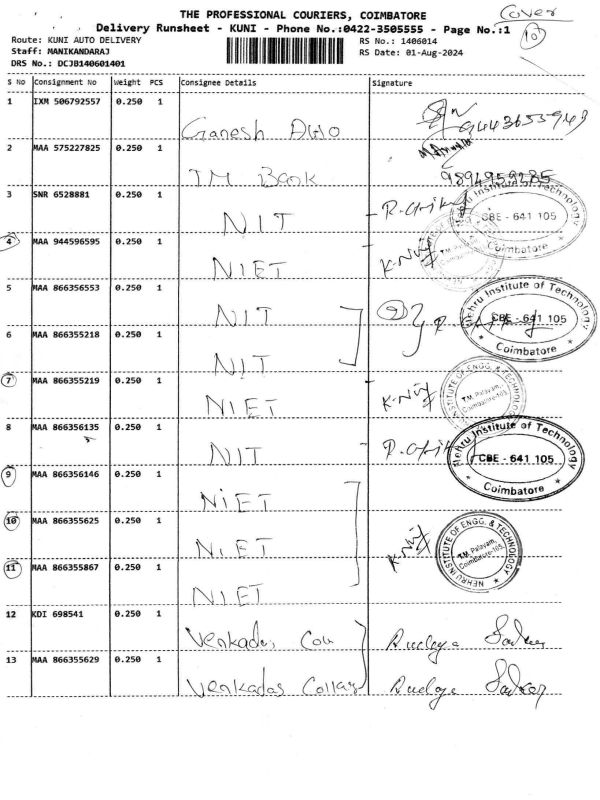 Cover
10
THE PROFESSIONAL COURIERS, COIMBATORE
Delivery Runsheet - KUNI - Phone No.:0422-3505555 - Page No.:1
Route: KUNI AUTO DELIVERY RS No.: 1406014
Staff: MANIKANDARAJ RS Date: 01-Aug-2024
DRS No.: DCJB140601401
S No Consignment No Weight PCS Consignee Details Signature
1 IXM 506792557 0.250 1
Ganesh Auto 9443655943
2 MAA 575227825 0.250 1
TM Bank 9894959285
3 SNR 6528881 0.250 1
NIT Nehru Institute of Technology CBE - 641 105 Coimbatore
4 MAA 944596595 0.250 1
NIET
5 MAA 866356553 0.250 1
NIT Nehru Institute of Technology CBE - 641 105 Coimbatore
6 MAA 866355218 0.250 1
NIT
7 MAA 866355219 0.250 1
NIET T.M. Palayam, Coimbatore-105
8 MAA 866356135 0.250 1
NIT Nehru Institute of Technology CBE - 641 105 Coimbatore
9 MAA 866356146 0.250 1
NIET
10 MAA 866355625 0.250 1
NIET NEHRU INSTITUTE OF ENGG. & TECHNOLOGY T.M. Palayam, Coimbatore-105
11 MAA 866355867 0.250 1
NIET
12 KDI 698541 0.250 1
Venkadas
13 MAA 866355629 0.250 1
Venkadas